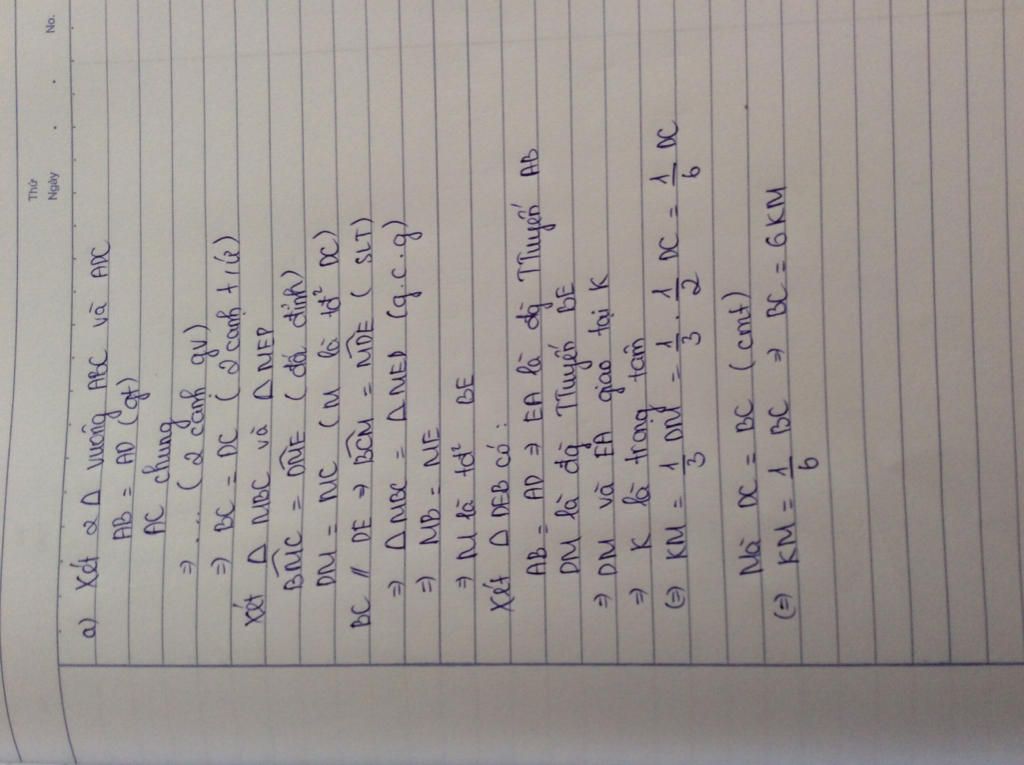 Thứ
Ngày
No.
a) Xét 2 Δ vuông ABC và ADC
AB = AD (gt)
AC chung
⇒ ... (2 cạnh gv)
⇒ BC = DC (2 cạnh t/ứ)
Xét Δ MBC và Δ MED
BMC = DME (đđ đỉnh)
DM = MC (M là tđ² DC)
BC // DE ⇒ BCM = MDE (SLT)
⇒ Δ MBC = Δ MED (g.c.g)
⇒ MB = ME
⇒ M là tđ² BE
Xét Δ DEB có:
AB = AD ⇒ EA là đg TTuyến AB
DM là đg TTuyến BE
⇒ DM và EA giao tại K
⇒ K là trọng tâm
(=) KM = 1/3 DM = 1/3 . 1/2 DC = 1/6 DC
Mà DC = BC (cmt)
(=) KM = 1/6 BC ⇒ BC = 6KM